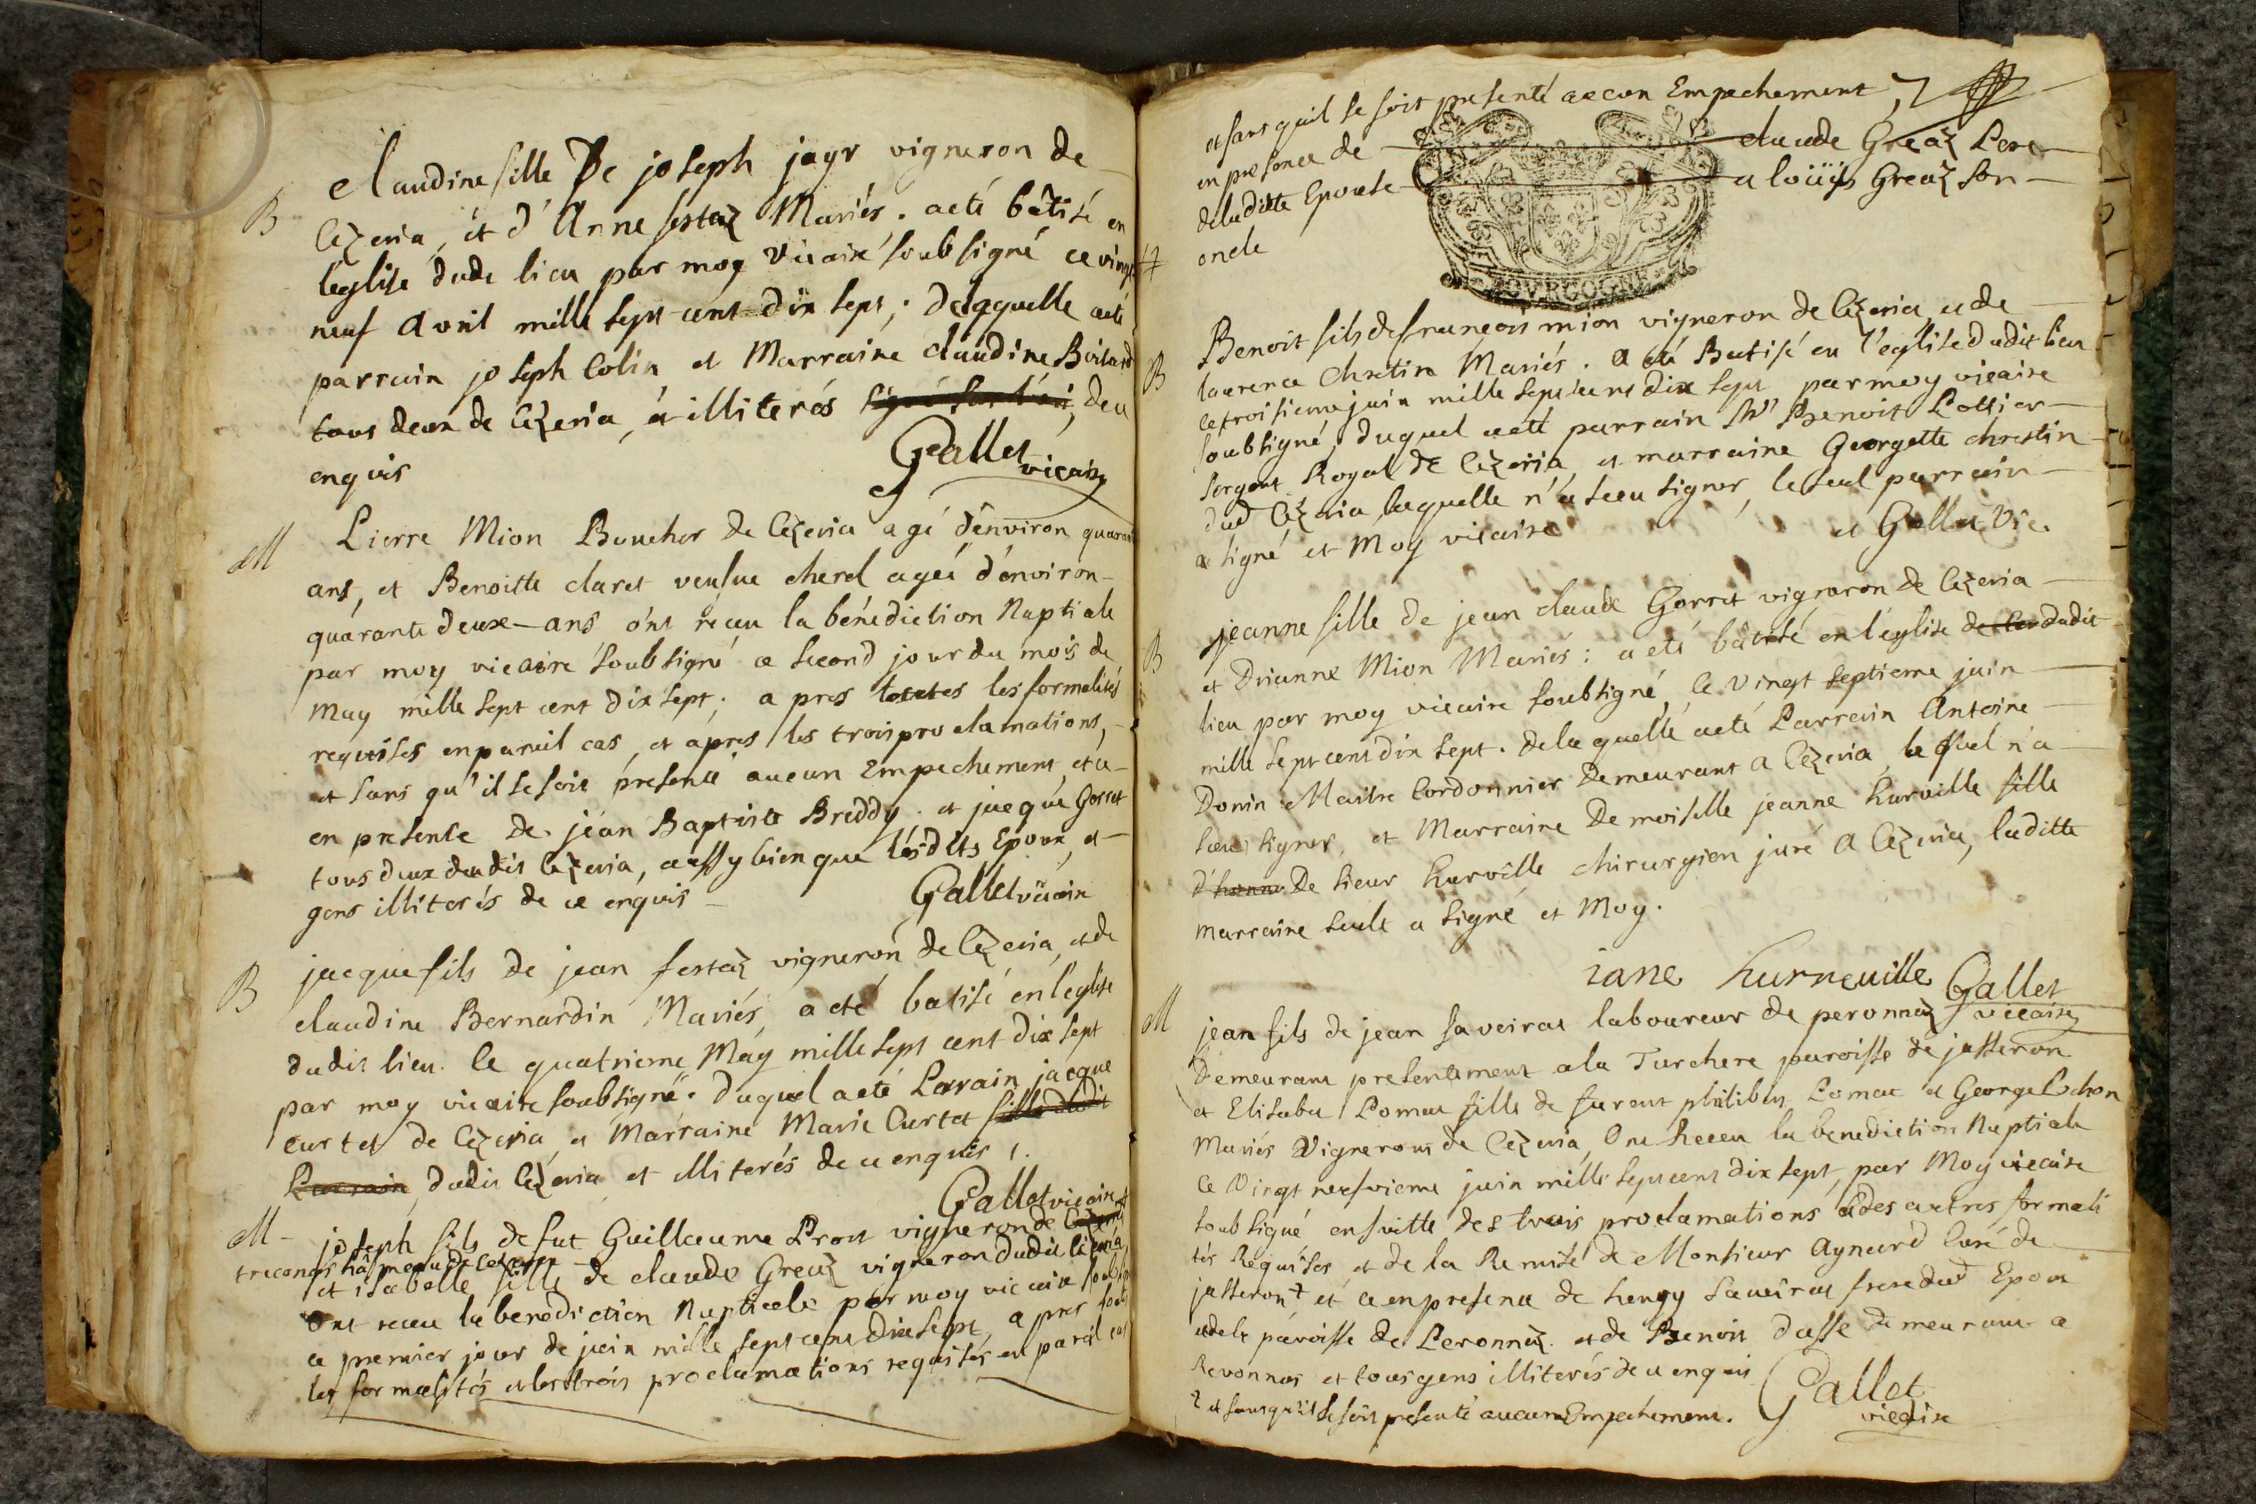 B
Claudine fille De joseph jayr vigneron de
Cezeria, et d'Anne festaz Mariés. a eté bâtisé en
l'eglise dude lieu par moy vicaire soubsigné ce vingt
neuf avril mille sept cent dix sept; de laquelle a eté
parrain joseph Colin et Marraine claudine Boilard
tous deux de Cezeria, et illiterés de ce
enquis
Gallet vicaire
M
Pierre Mion Boucher de Cezeria agé d'environ quarante
ans, et Benoitte claret veufue cherel agée d'environ
quarante deux ans ont receu la bénediction Nuptiale
par moy vicaire soubsigné ce second jour du mois de
may mille sept cent dix sept; apres toutes les formalités
requises en pareil cas, et apres les trois proclamations,
et sans qu'il se soit presenté aucun Empechement, et ce
en presence de jean Baptiste Breddy. et jacque Gorret
tous deux dudit Cezeria, aussy bien que lesdits Epoux, et
gens illiterés de ce enquis
Gallet vicaire
B
jacque fils de jean festaz vigneron de Cezeria, et de
claudine Bernardin Mariés, a eté batisé en l'eglise
dudit lieu. le quatrieme May mille sept cent dix sept
par moy vicaire soubsigné. duquel a eté Parain jacque
curtet de Cezeria, et Marraine Marie Curtet fille dudit
Parrain, dudit Cezeria et illiterés de ce enquis.
Gallet vicaire
M
joseph fils de fut Guillaume Prost vigneron de Cezeria
et isabelle fille de claude Greaz vigneron dudit Cezeria
ont receu la benediction Nuptiale par moy vicaire soubsigné
ce premier jour de juin mille sept cent dix sept, apres toutes
les formalités et les trois proclamations requises en pareil cas
et sans quil se soit presenté aucun Empechement,
en presence de claude Greaz Pere
de laditte Epouse et loüis Greaz son
oncle
BOURGOGNE
B
Benoit fils de françois mion vigneron de Cezeria, et de
laurence chretin Mariés. a eté Batisé en l'eglise dudit lieu
ce troisieme juin mille sept cent dix sept par moy vicaire
soubsigné, duquel a eté parrain Sr Benoit Lollier
sergent Royal de Cezeria, et marraine Georgette chrestin
dud Cezeria laquelle n'a sceu signer, le seul parrain
a signé et Moy vicaire
et Gallet Vic.
B
jeanne fille de jean claude Gorret vigneron de Cezeria
et Drianne Mion Mariés: a eté bâtisé en l'eglise dudit
lieu par moy vicaire soubsigné, ce vingt septieme juin
mille sept cent dix sept. de laquelle a eté Parrain Antoine
Donin Maitre Cordonnier Demeurant a Cezeria, lequel n'a
sceu signer, et Marraine Demoiselle jeanne hurville fille
De sieur hurville chirurgien juré a Cezeria, laditte
marraine seule a signé et Moy.
iane hurneuille
Gallet
vicaire
M
jean fils de jean saveirat laboureur de peronnaz
Demeurant presentement a la Turchere paroisse de jasseron
et Elisabet Pomat fille de furent philibert Pomat et George Cochon
Mariés Vignerons de Cezeria, Ont Receu la benediction Nuptiale
Ce Vingt neufvieme juin mille sept cent dix sept, par Moy vicaire
soubsigné, en suitte des trois proclamations et des autres formali
tés Requises et de la Remise de Monsieur Aynard Curé de
jasseron et ce en presence de henry saueirat frere dud Epoux
et de la paroisse de Peronnaz. et de Benoit dasse demeurant a
Revonnas et tous gens illiterés de ce enquis
et sans qu'il se soit presenté aucun Empechement.
Gallet
vicaire